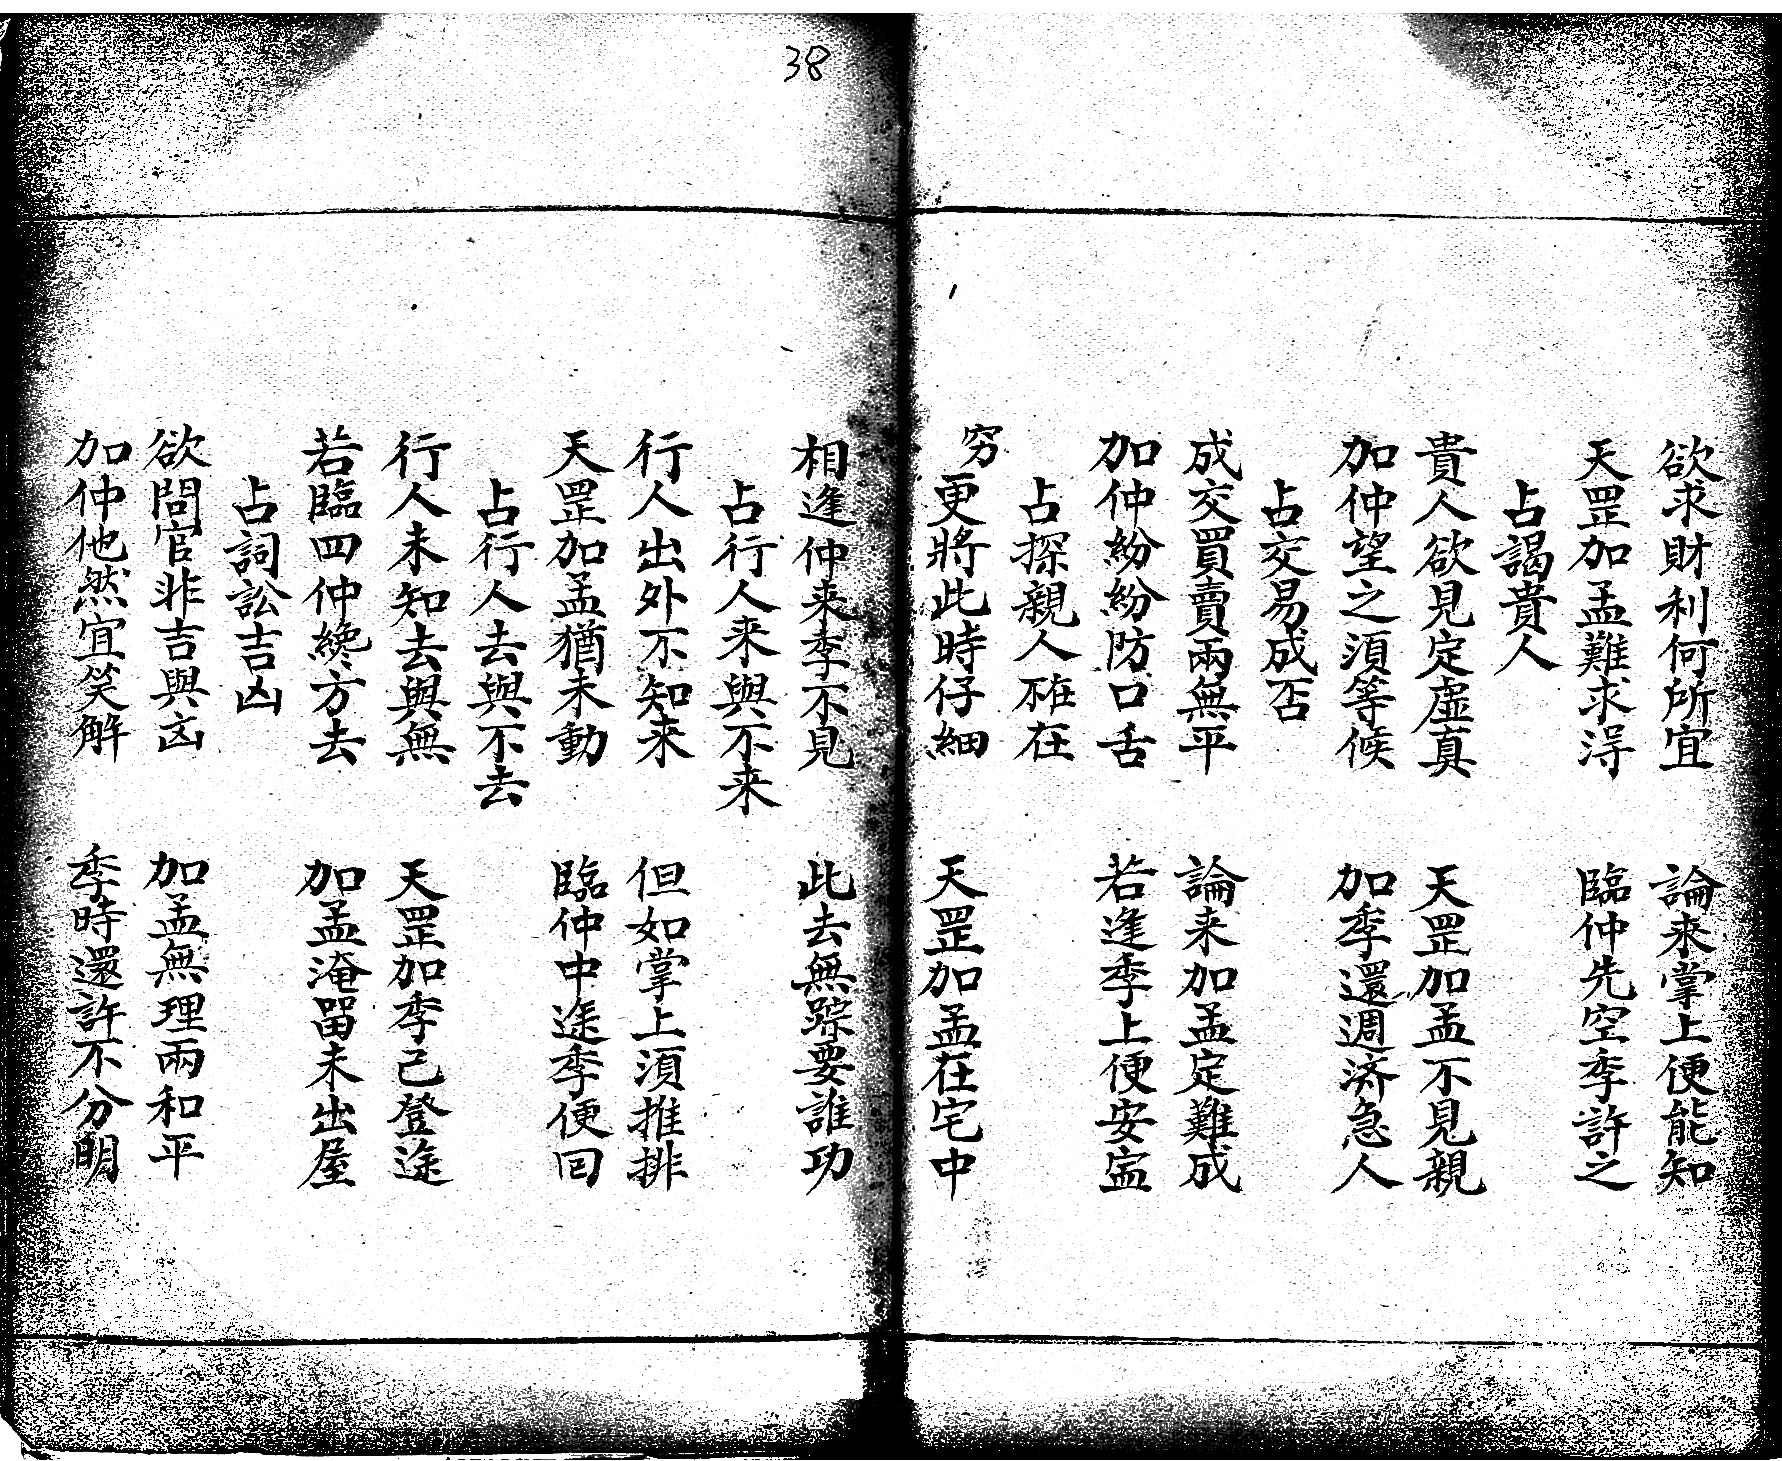 38
欲求財利何所宜　論来掌上便能知
天罡加孟難求淂　臨仲先空季許之
占謁貴人
貴人欲見定虛真　天罡加孟不見親
加仲望之須等候　加季還週济急人
占交易成否
成交買賣兩無平　論来加孟定難成
加仲紛紛防口舌　若逢季上便安寍
占探親人在
窮更將此時仔細　天罡加孟在宅中
相逢仲来季不見　此去無踪要誰功
占行人来與不来
行人出外不知来　但如掌上須推排
天罡加孟猶未動　臨仲中途季便囘
占行人去與不去
行人未知去與無　天罡加季己登途
若臨四仲纔方去　加孟淹畱未出屋
占詞訟吉凶
欲問官非吉與㐫　加孟無理兩和平
加仲他然宜笑解　季時還許不分明